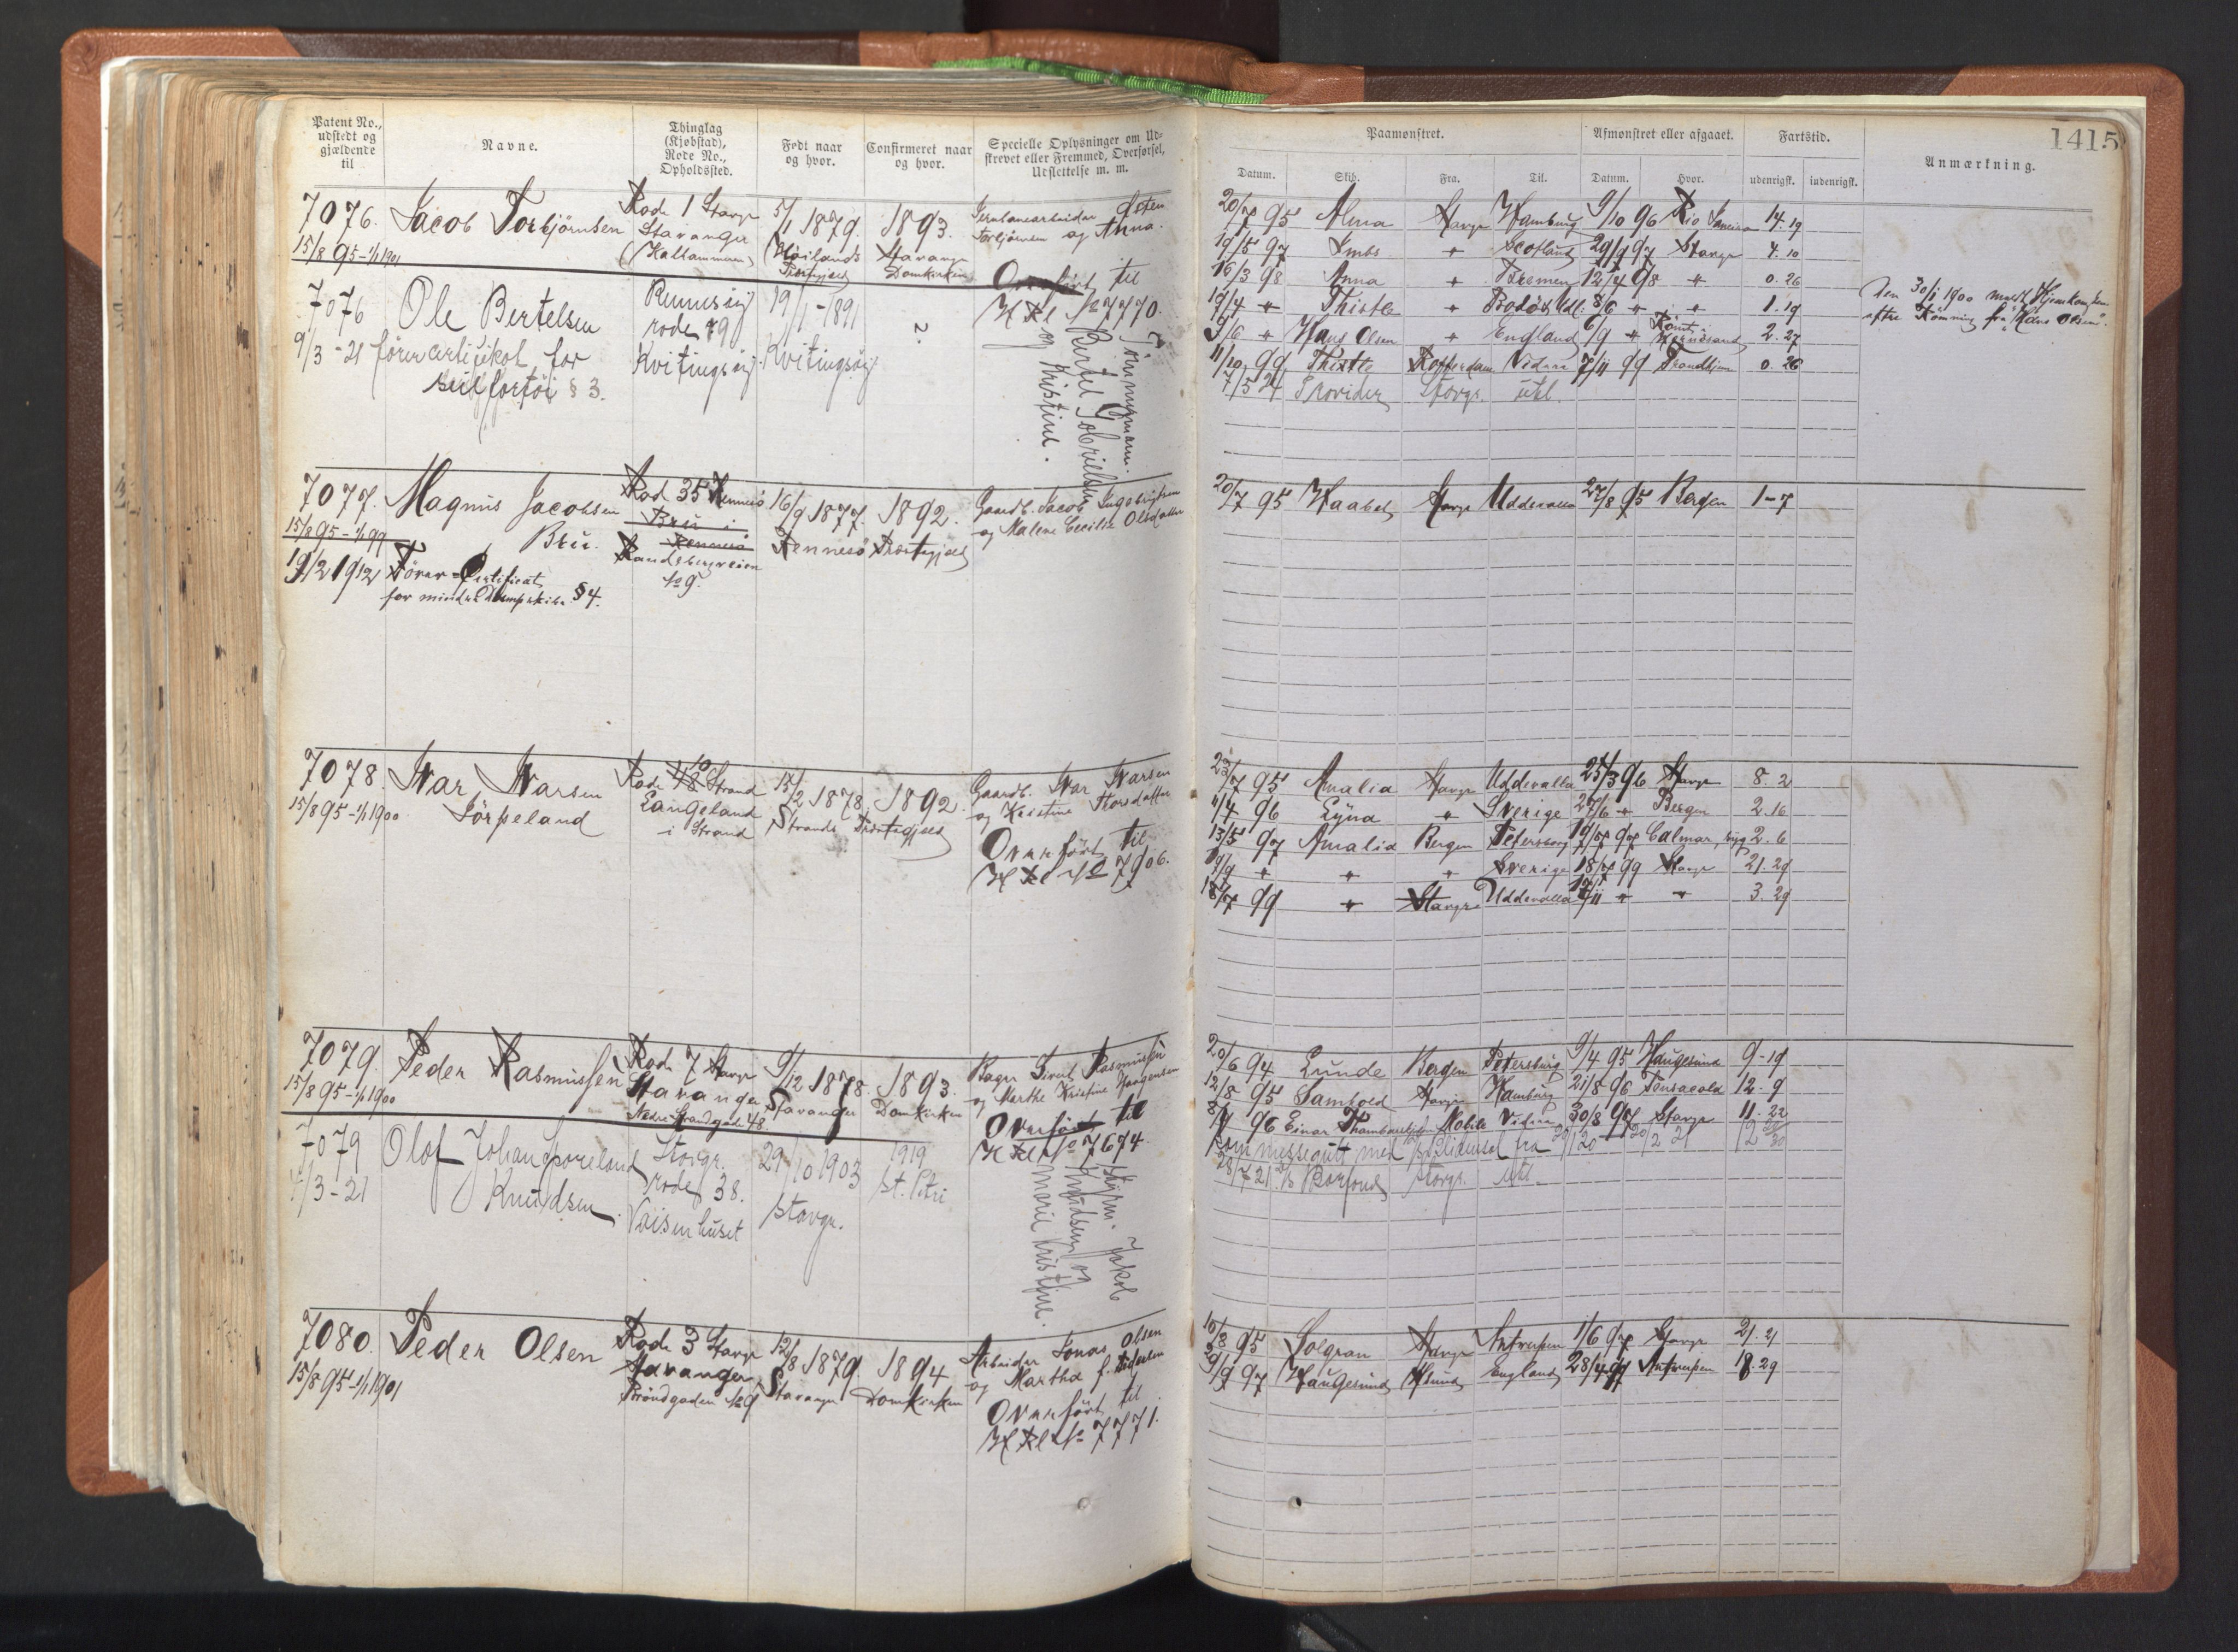 Patent No.,
udstedt og
gjældende
til
Navne.
Thinglag
(Kjøbstad),
Rode No.,
Opholdssted.
Født naar
og hvor.
Confirmeret naar
og hvor.
Specielle Oplysninger om Ud-
skrevet eller Fremmed, Overførsel,
Udslettelse m. m.
7076. Jacob Torbjörnsen Rode 1 Stavgr 5/1 1879. 1893.
15/8 95 - 1/1 1901 Stavanger Høilands Stavanger
Torbjörnsen og Anna.
Præstegjeld Domkirken
Overført til
H Rl No 7770.
7076 Ole Bertelsen Rennesøy 19/1 - 1891 ?
rode 19
9/3 - 21 for
seilfartöi § 3. Kvitingsöy Kvitingsöy
Bertel Gabrielsen
og Kristine.
7077. Magnus Jacobsen Rod. 35 Rennesö 16/9 1877. 1892. Gaardb. Jacob Ingebrigtsen
15/8 95 - 1/1 99 Bru. Bru i Rennesö Præstegjeld og Malene Cecilie Olsdatter
Rennesö
19/2 1912 Förer-Certificat Randsbergveien
for mindre Dampskibe. § 4. No 9.
7078. Ivar Ivarsen Rode 18 10 Strand 15/2 1878. 1892. Gaardb. Ivar Ivarsen
15/8 95 - 1/1 1900 Jörpeland Langeland Strands Præstegjeld og Kristine Thorsdatter
i Strand
Overført til
H Rl No 7906.
7079. Peder Rasmussen Rode 7 Stavgr 9/12 1878. 1893. Bager Sivert Rasmussen
15/8 95 - 1/1 1900 Stavanger Stavanger Domkirken og Marthe Kristine Jörgensen
Nedre Strandgade 48.
Overført til
H Rl No 7674.
7079 Olof Johan Storgr. 29/10 1903 1919
4/3 - 21 Knudsen. rode 38. Stavgr. St. Petri
Vaisenhuset
Styrm. Jakob
Knudsen og
Marie Kristine.
7080. Peder Olsen Rode 3 Stavgr 12/8 1879. 1894 Arbeider Jonas Olsen
15/8 95 - 1/1 1901 Stavanger Stavanger Domkirken og Martha f. Pedersen
Bröndgaden No 9
Overført til
H Rl No 7771.
1415
Paamønstret.
Afmønstret eller afgaaet.
Fartstid.
Anmærkning.
Datum. Skib. Fra. Til. Datum. Hvor. udenrigsk. indenrigsk.
20/7 95 Alma Stavgr Hamburg 9/10 96 Rio Janeiro 14. 19
19/5 97 Imbs " Scotland 29/9 97 Stavgr 4. 10
16/3 98 Anna " Bremen 12/4 98 " 0. 26
19/4 " Thistle " 8/6 " " 1. 19
9/6 " Hans Olsen " England 6/9 " Römt i 2. 27
11/10 99 Thistle Rotterdam Videre 7/11 99 Trondhjem 0. 26
7/5 21 Provider Stavgr. utl.
Den 30/1 1900 meldt Hjemkommen
efter Römning fra "Hans Olsen".
20/7 95 Haabet Stavgr Uddevalla 27/8 95 Bergen 1-7
23/7 95 Amalia Stavgr Uddevalla 25/3 96 Stavgr 8. 2
11/4 96 Eyna " Sverige 27/6 " Bergen 2. 16
13/5 97 Amalia Bergen Petersborg 19/7 97 Calmar, syg 2. 6
19/9 " " " Sverige 18/7 99 Stavgr 21. 29
18/7 99 " Stavgr Uddevalla 17/11 " " 3. 29
20/6 94 Lunde Bergen Petersborg 9/4 95 Haugesund 9-19
12/8 95 Samhold Stavgr Hamburg 21/8 96 Pensacola 12. 9
8/9 96 Einar Thambarskjelver Mobile Videre 30/8 97 Stavgr 11. 22
som messegutt med fra 20/1 20 20/2 21
28/7 21 Stavgr. utl.
10/8 95 Solgran Stavgr Antwerpen 1/6 97 Stavgr 21. 21
29/9 97 Haugesund Hsund England 28/4 99 Antwerpen 18. 29